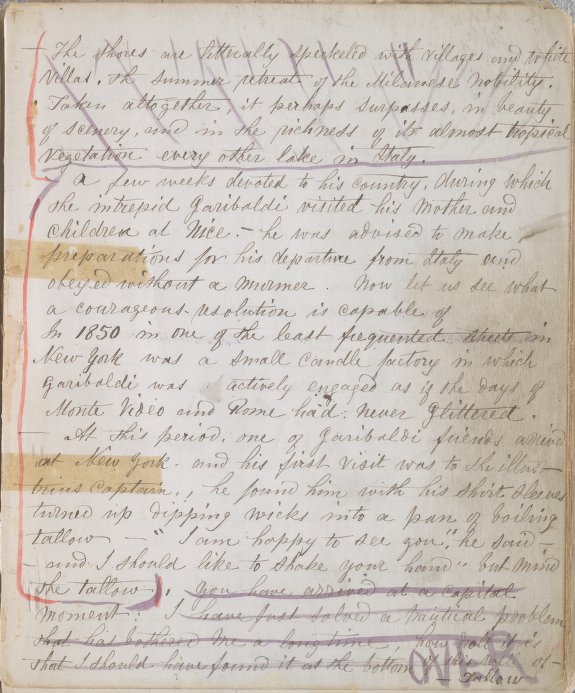 — The shores are litterally speckeled with villages and white
villas. the summer retreat of the Milanese Nobility.
Taken alltogether, it perhaps surpasses, in beauty
of scenery, and in the richness of its almost tropical
vegetation every other lake in Italy.
A few weeks devoted to his country, during which
the intrepid Garibaldi visited his Mother and
children at Nice. — he was advised to make
preparations for his departure from Italy and
obeyed without a murmer. Now let us see what
a courageous resolution is capable of
In 1850 in one of the least frequented streets in
New York was a small candle factory in which
Garibaldi was actively engaged as if the days of
Monte Video and Rome had never glittered.
— At this period, one of Garibaldi friends arrive
at New York. and his first visit was to the illus-
trius Captain., he found him with his shirt sleeves
turned up dipping wicks into a pan of boiling
tallow — "I am happy to see you," he said —
- and I should like to shake your hand" but mind
the tallow. You have arrived at a capital
moment: I have just solved a nautical problem
that has bothered me a long time, how odd it is
that I should have found it at the bottom of this kettle of
— Tallow
OVER